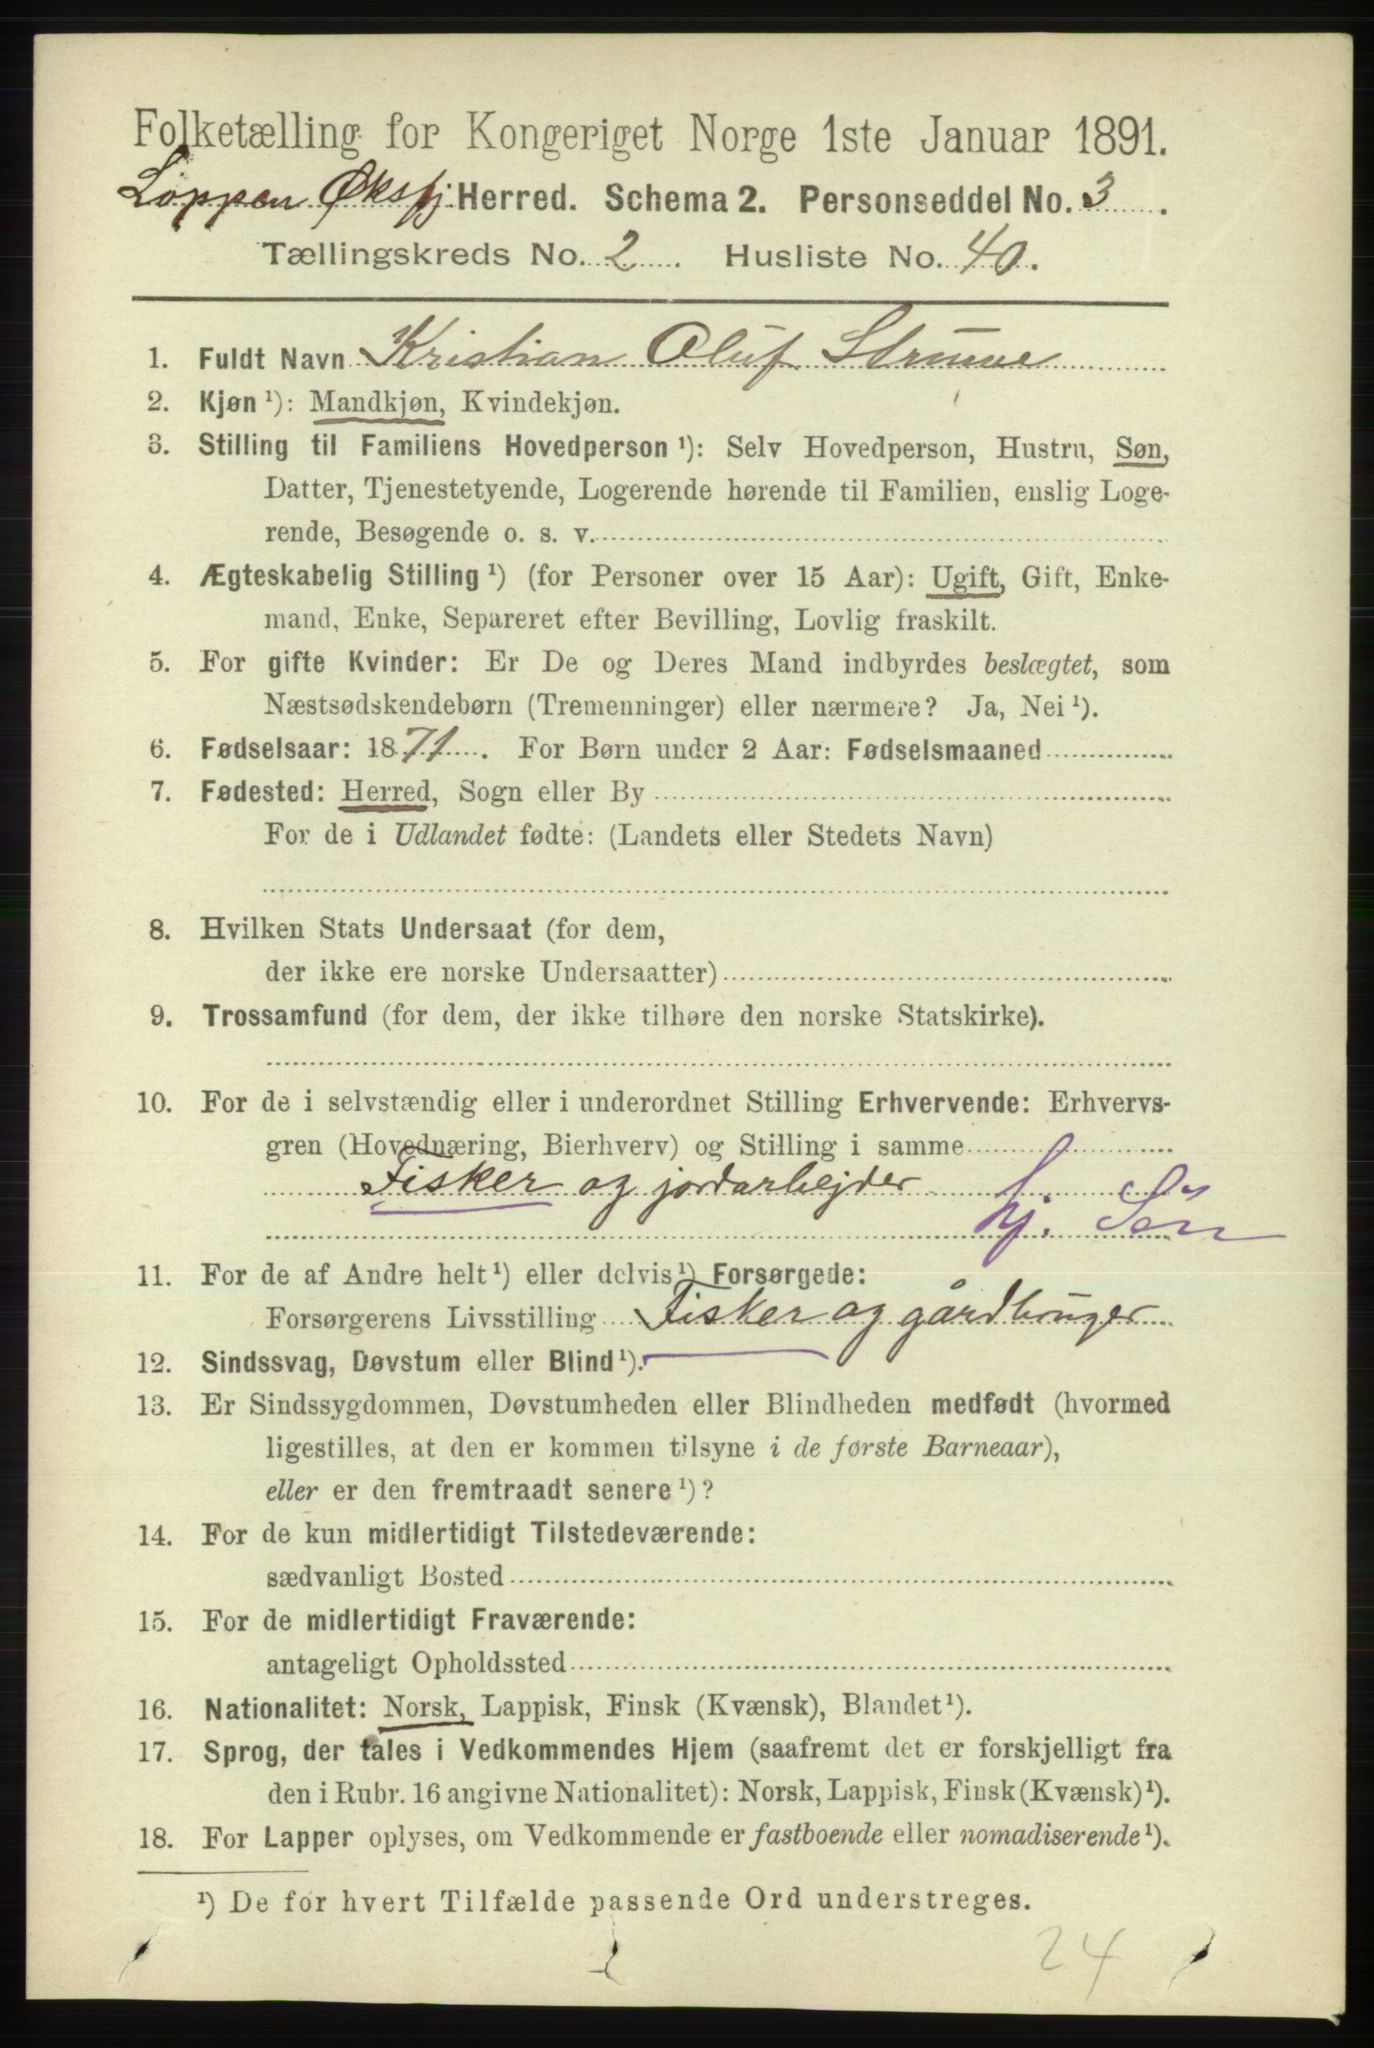 Folketælling for Kongeriget Norge 1ste Januar 1891.
Loppen Øksfj Herred. Schema 2. Personseddel No. 3.
Tællingskreds No. 2. Husliste No. 40.
1. Fuldt Navn Kristian Oluf Struwe
2. Kjøn ¹): Mandkjøn, Kvindekjøn.
3. Stilling til Familiens Hovedperson ¹): Selv Hovedperson, Hustru, Søn,
Datter, Tjenestetyende, Logerende hørende til Familien, enslig Loge-
rende, Besøgende o. s. v.
4. Ægteskabelig Stilling ¹) (for Personer over 15 Aar): Ugift, Gift, Enke-
mand, Enke, Separeret efter Bevilling, Lovlig fraskilt.
5. For gifte Kvinder: Er De og Deres Mand indbyrdes beslægtet, som
Næstsødskendebørn (Tremenninger) eller nærmere? Ja, Nei ¹).
6. Fødselsaar: 1871. For Børn under 2 Aar: Fødselsmaaned
7. Fødested: Herred, Sogn eller By
For de i Udlandet fødte: (Landets eller Stedets Navn)
8. Hvilken Stats Undersaat (for dem,
der ikke ere norske Undersaatter)
9. Trossamfund (for dem, der ikke tilhøre den norske Statskirke).
10. For de i selvstændig eller i underordnet Stilling Erhvervende: Erhvervs-
gren (Hovednæring, Bierhverv) og Stilling i samme
Fisker og jordarbejder
hj. Søn
11. For de af Andre helt ¹) eller delvis ¹) Forsørgede:
Forsørgerens Livsstilling Fisker og gårdbruger
12. Sindssvag, Døvstum eller Blind ¹).
13. Er Sindssygdommen, Døvstumheden eller Blindheden medfødt (hvormed
ligestilles, at den er kommen tilsyne i de første Barneaar),
eller er den fremtraadt senere ¹)?
14. For de kun midlertidigt Tilstedeværende:
sædvanligt Bosted
15. For de midlertidigt Fraværende:
antageligt Opholdssted
16. Nationalitet: Norsk, Lappisk, Finsk (Kvænsk), Blandet ¹).
17. Sprog, der tales i Vedkommendes Hjem (saafremt det er forskjelligt fra
den i Rubr. 16 angivne Nationalitet): Norsk, Lappisk, Finsk (Kvænsk) ¹).
18. For Lapper oplyses, om Vedkommende er fastboende eller nomadiserende ¹).
¹) De for hvert Tilfælde passende Ord understreges.
24